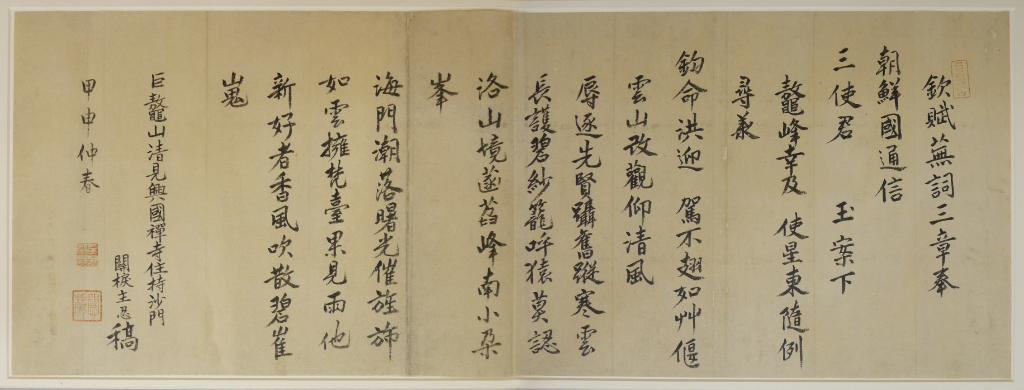 欽賦蕪詞三章奉
朝鮮國通信
三使君 玉案下
鼇峰幸及 使星東隨例
尋教
鈞命洪迎 駕不翅如艸偃
雲山改觀仰清風
辱逐先賢躡舊蹤寒雲
長護碧紗籠呼猿莫認
洛山境蓬萊峰南小朵
峯
海門潮落曙光催旌斾
如雲擁梵臺果見雨他
新好者香風吹散碧崔
嵬
巨鼇山清見興國禪寺住持沙門
關棙主忍稿
甲申仲春